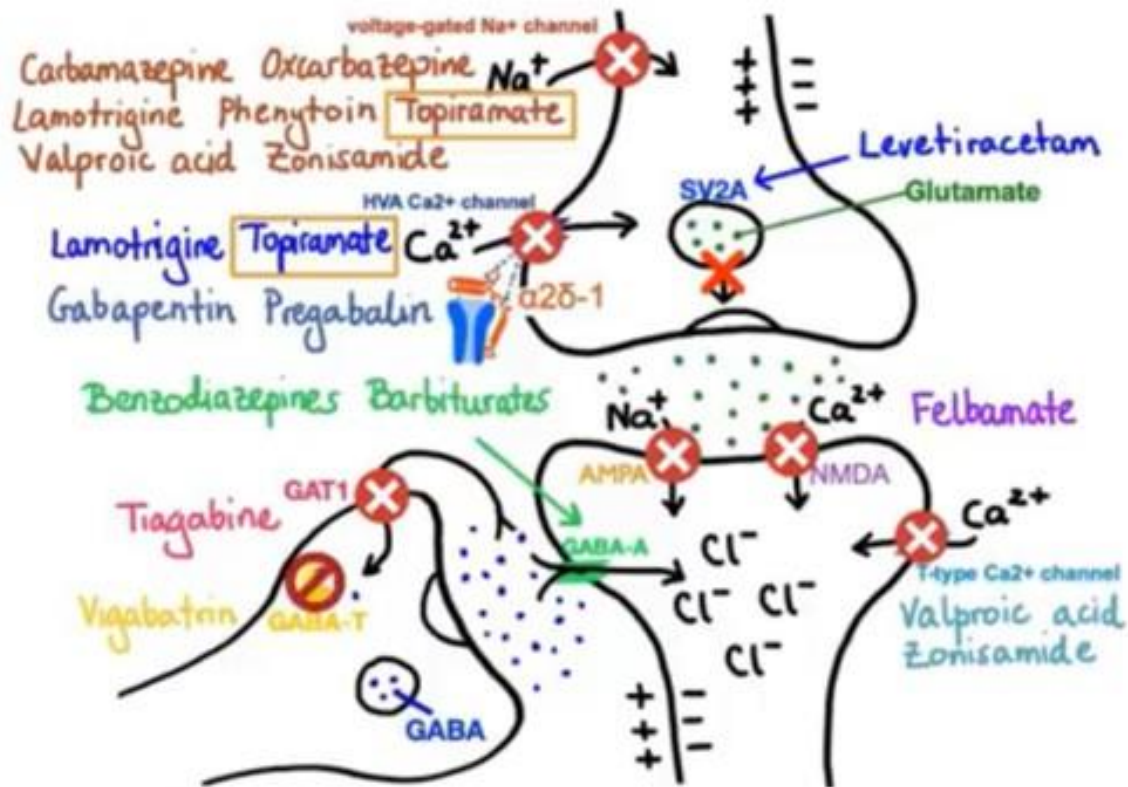 voltage-gated Na+ channel
Carbamazepine Oxcarbazepine Na+
Lamotrigine Phenytoin Topiramate
Valproic acid Zonisamide
+ −
+ −
+ −
Levetiracetam
SV2A
Glutamate
HVA Ca2+ channel
Lamotrigine Topiramate Ca2+
α2δ-1
Gabapentin Pregabalin
Benzodiazepines Barbiturates
Na+
Ca2+
Felbamate
AMPA
NMDA
GAT1
Tiagabine
Ca2+
GABA-A
Cl−
T-type Ca2+ channel
Vigabatrin GABA-T
Cl− Cl−
Valproic acid
Zonisamide
Cl−
GABA
+ −
+ −
+ −